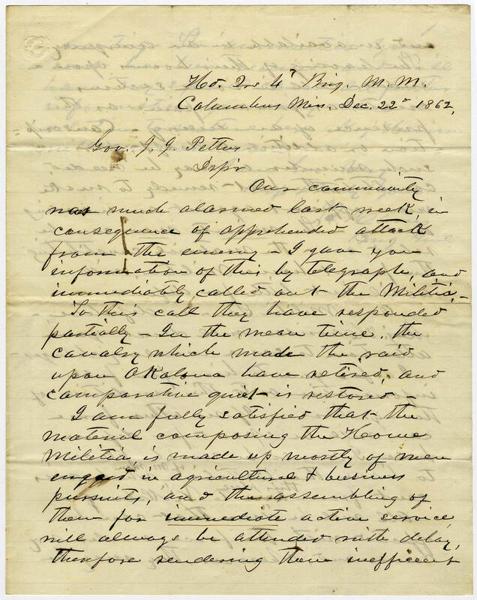 Hd. Qrs 4" Brig. M. M.
Columbus Miss. Dec. 22" 1862,
Gov. J. J. Pettus
Our community
was much alarmed last week, in
consequence of apprehended attack
from the enemy – I gave you
information of this by telegraph, and
immediately called out the Militia,–
To this call they have responded
partially – In the mean time, the
cavalry which made the raid
upon Okalona have retired, and
comparative quiet is restored –
I am fully satisfied that the
material composing the Home
Militia is made up mostly of men
engaged in agricultural & business
pursuits, and the assembling of
them for immediate active service
will always be attended with delay,
therefore rendering them inefficient